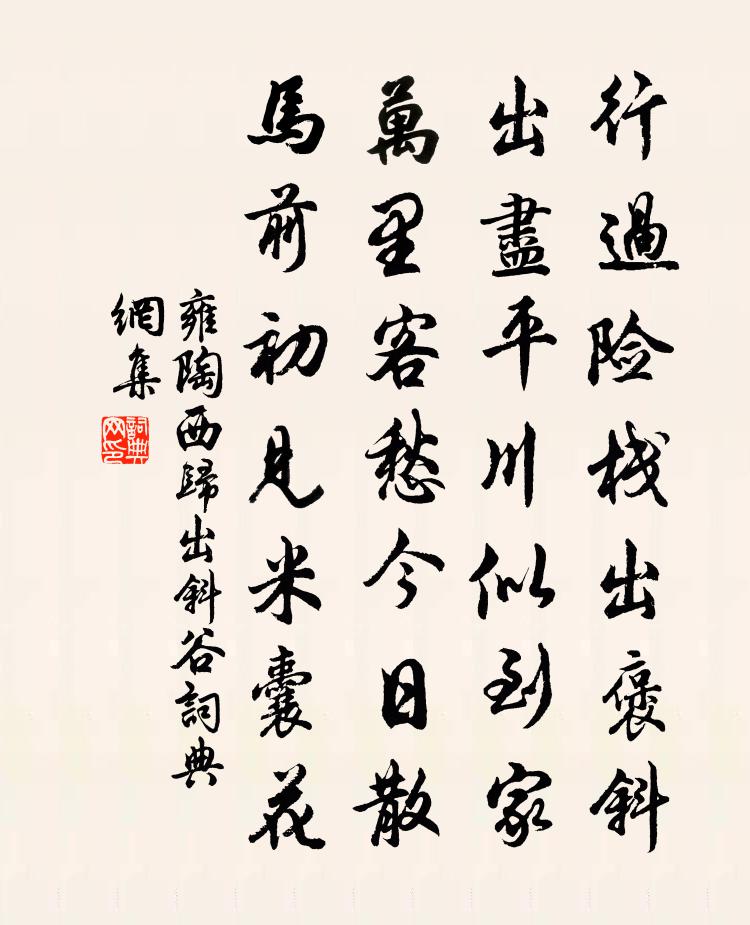 行過险栈出褒斜
出盡平川似到家
萬里客愁今日散
馬前初見米囊花
雍陶西歸出斜谷詞典
網集
詞典
网印